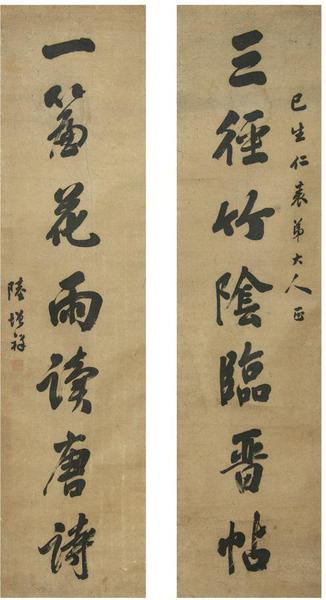 巳生仁表弟大人正
三徑竹陰臨晉帖
一簾花雨讀唐詩
陸增祥